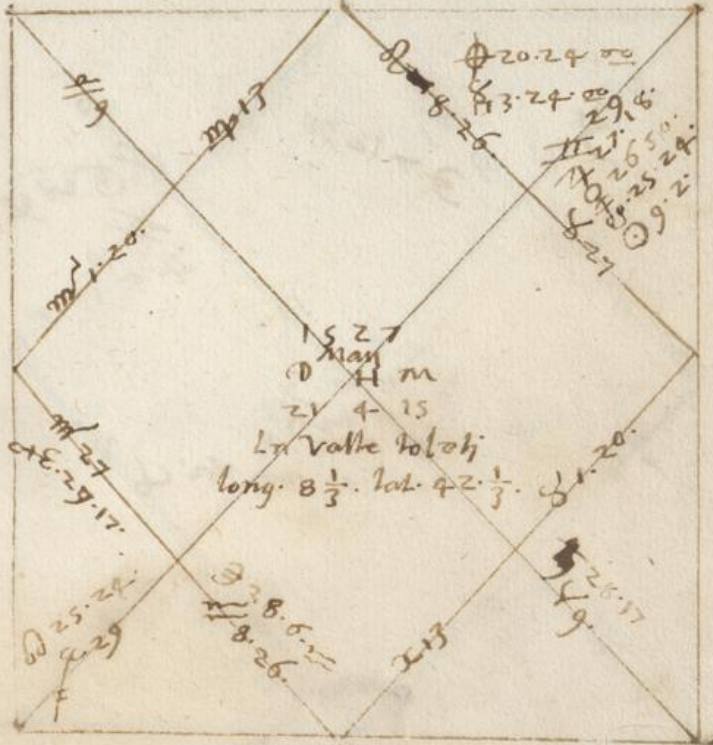 ♎ 9
♍ 13
♌ 8.26.
⊕ 20.24 ♋
3.24.♋
29.
♊ 27.
26 50.
25.24.
☉ 9.2.
♉ 27
♏ 1.20.
1527
May
D H M
21 4 15
In Valle toleti
long. 8 1/3. lat. 42. 1/3.
♏ 27
29.17.
♉ 1.20.
25.24.
29
8.6.
♒ 8.26.
♓ 13
28.17
♈ 9.